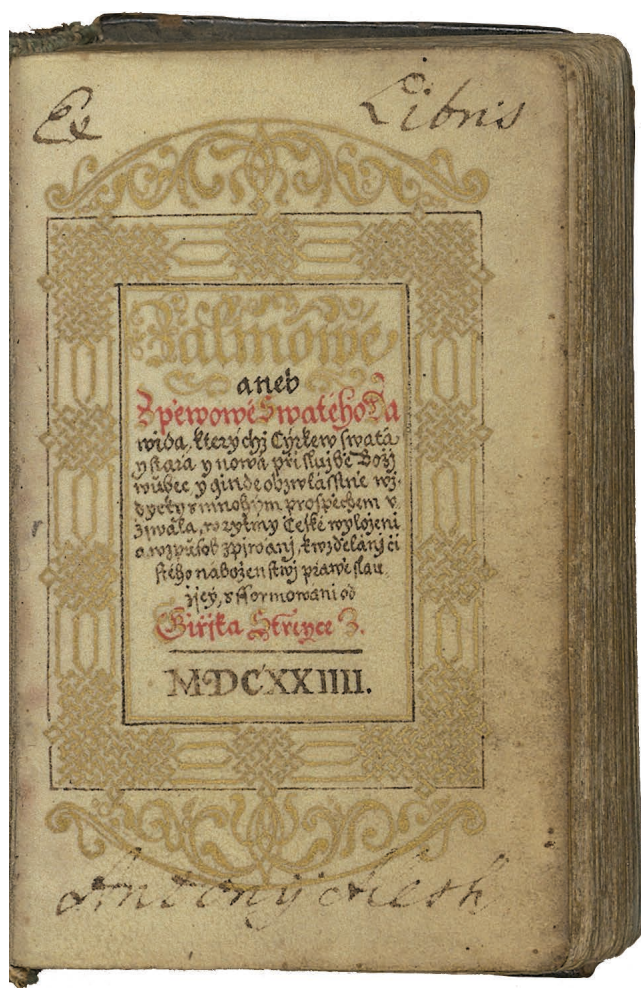 Ex Libris
Žalmowé
aneb
Zpěwowé Swatého Da
wida, kterýchž Cýrkew swatá
y stará y nowá při službě Boží
wůbec, y ginde obzwlásstně wž-
dycky s mnohým prospěchem v-
žjwala, w rytmy České wyloženi
a w způsob zpjwanj, k wzdělánj či
stého náboženstwj prawě slau
žjcý, sfformowani od
Giřjka Streyce Z.
MDCXXIIII.
Antonij